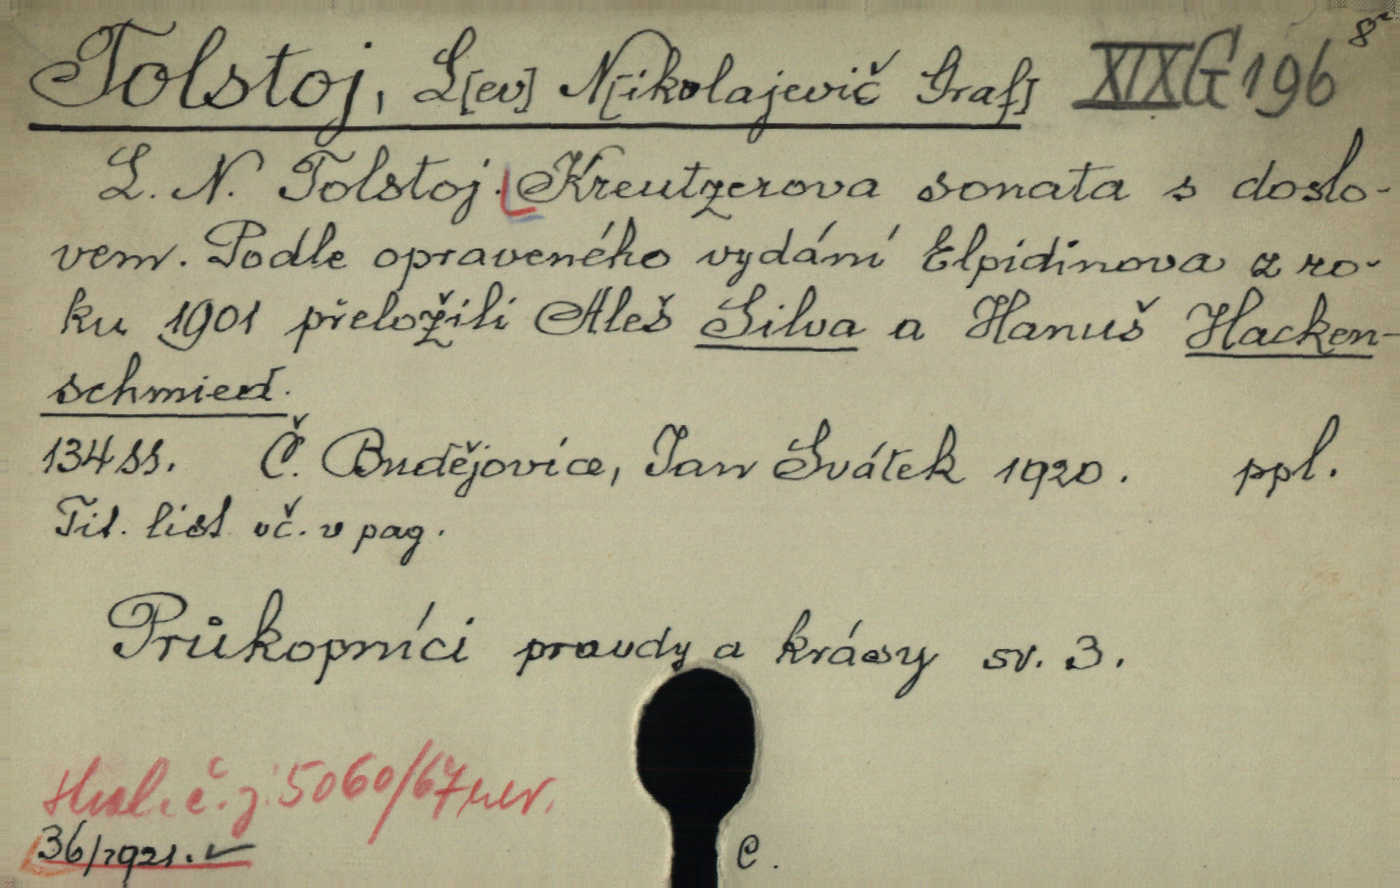 Tolstoj, L[ev] N[ikolajevič Graf] XIX G 196 8°
L. N. Tolstoj. Kreutzerova sonata s doslo-
vem. Podle opraveného vydání Elpidinova z ro-
ku 1901 přeložili Aleš Silva a Hanuš Hacken-
schmied.
134 ss. Č. Budějovice, Jan Svátek 1920. ppl.
Tit. list vč. v pag.
Průkopníci pravdy a krásy sv. 3.
č. j. 5060/67
36/1921.
C.